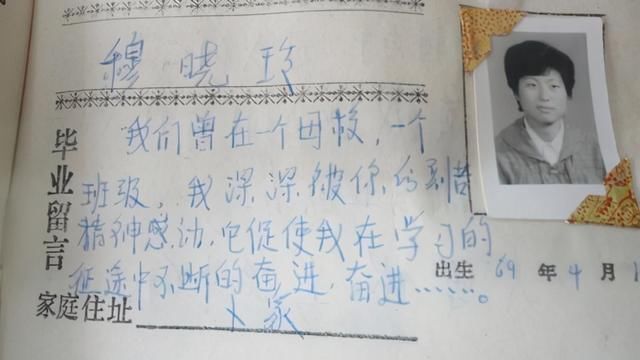 穆晓玲
毕业留言
我们曾在一个母校，一个
班级，我深深被你的刻苦
精神感动，它促使我在学习的
征途中不断的奋进，奋进……。
出生 69 年 4 月 1
家庭住址 卜家